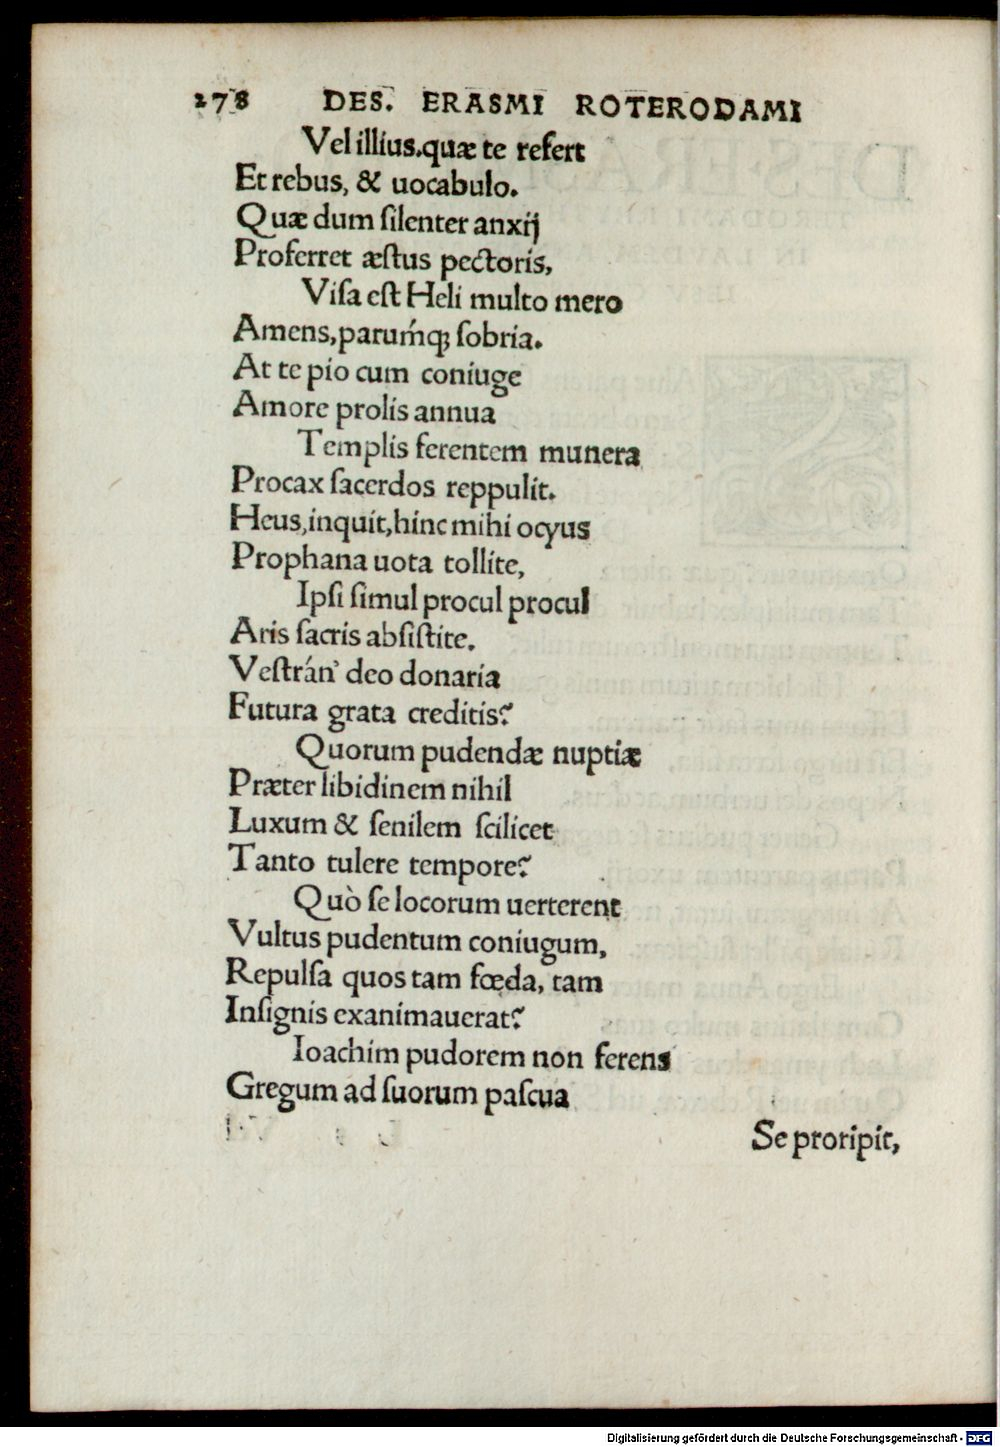 278 DES. ERASMI ROTERODAMI
Vel illius.quæ te refert
Et rebus, & uocabulo.
Quæ dum ſilenter anxij
Proferret æſtus pectoris,
Viſa eſt Heli multo mero
Amens,parumq́; ſobria.
At te pio cum coniuge
Amore prolis annua
Templis ferentem munera
Procax ſacerdos reppulit.
Heus,inquit,hinc mihi ocyus
Prophana uota tollite,
Ipſi ſimul procul procul
Aris ſacris abſiſtite.
Veſtrán' deo donaria
Futura grata creditis?
Quorum pudendæ nuptiæ
Præter libidinem nihil
Luxum & ſenilem ſcilicet
Tanto tulere tempore?
Quò ſe locorum uerterent
Vultus pudentum coniugum,
Repulſa quos tam fœda, tam
Inſignis exanimauerat?
Ioachim pudorem non ferens
Gregum ad ſuorum paſcua
Se proripit,
Digitalisierung gefördert durch die Deutsche Forschungsgemeinschaft - DFG